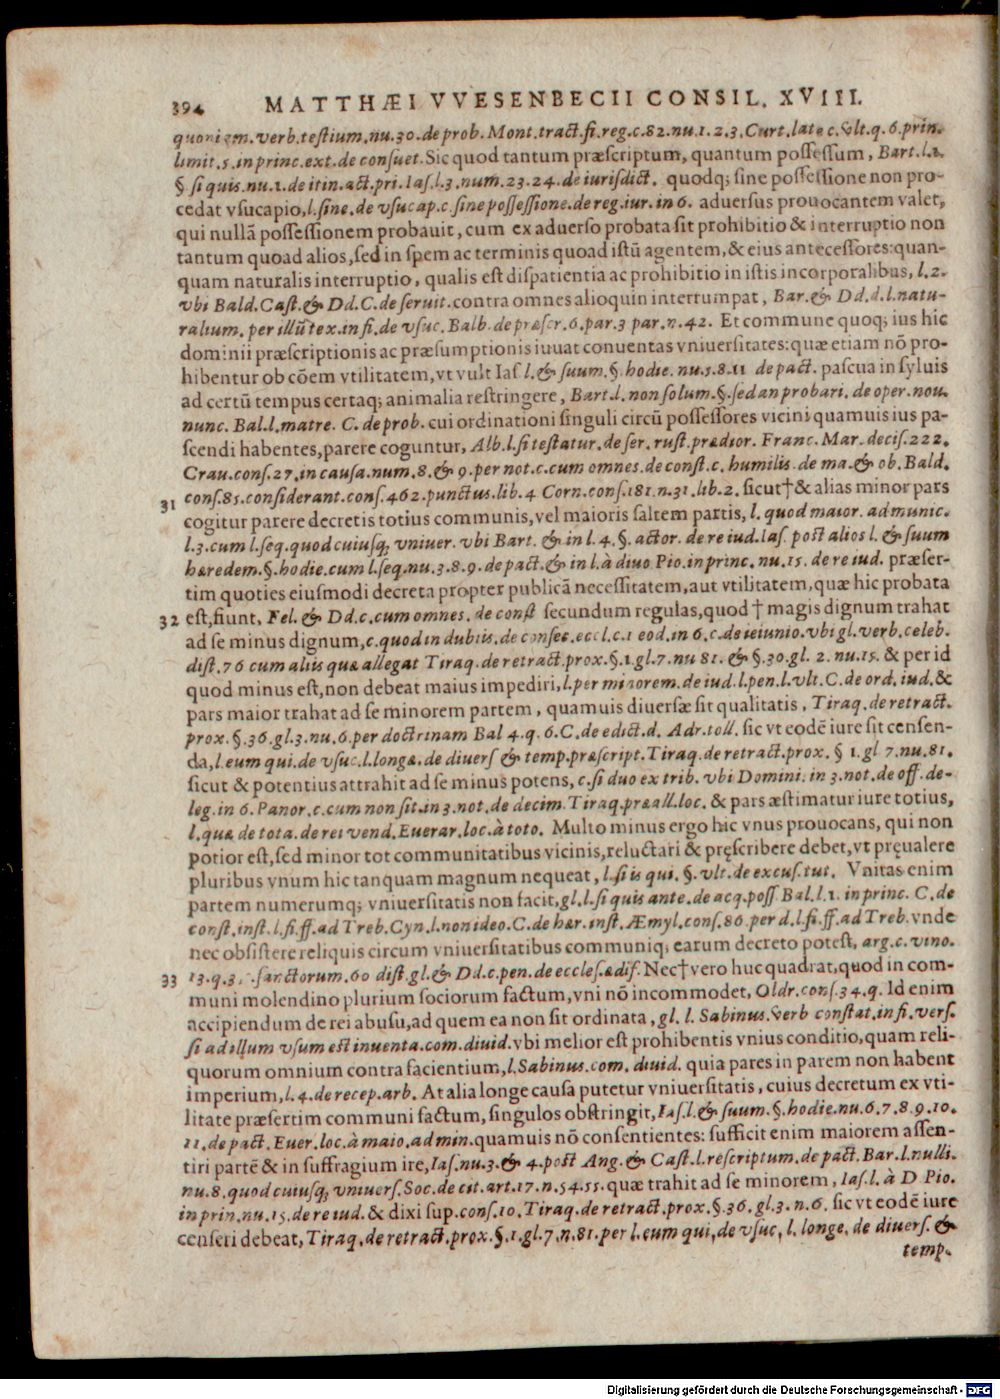 394 MATTHÆI VVESENBECII CONSIL. XVIII.
quoniam. verb. testium. nu. 30. de prob. Mont. tract. fi. reg. c. 82. nu. 1. 2. 3. Curt. late c. vlt. q. 6. prin.
limit. 5. in princ. ext. de consuet. Sic quod tantum præscriptum, quantum possessum, Bart. l. 1.
§. si quis. nu. 1. de itin. act. pri. Ias. l. 3. num. 23. 24. de iurisdict. quodq; sine possessione non pro-
cedat vsucapio, l. sine. de vsucap. c. sine possessione. de reg. iur. in 6. aduersus prouocantem valet,
qui nullâ possessionem probauit, cum ex aduerso probata sit prohibitio & interruptio non
tantum quoad alios, sed in spem ac terminis quoad istū agentem, & eius antecessores: quan-
quam naturalis interruptio, qualis est dispatientia ac prohibitio in istis incorporalibus, l. 2.
vbi Bald. Cast. & Dd. C. de seruit. contra omnes alioquin interrumpat, Bar. & Dd. d. l. natu-
ralium. per illū tex. in fi. de vsuc. Balb. de præscr. 6. par. 3 par. n. 42. Et commune quoq; ius hic
dominii præscriptionis ac præsumptionis iuuat conuentas vniuersitates: quæ etiam nō pro-
hibentur ob cōem vtilitatem, vt vult Ias l. & suum. §. hodie. nu. 5. 8. 11 de pact. pascua in syluis
ad certū tempus certaq; animalia restringere, Bart. l. non solum. §. sed an probari. de oper. nou.
nunc. Bal. l. matre. C. de prob. cui ordinationi singuli circū possessores vicini quamuis ius pa-
scendi habentes, parere coguntur, Alb. l. si testatur. de ser. rust. prædior. Franc. Mar. decis. 222.
Crau. cons. 27. in causa. num. 8. & 9. per not. c. cum omnes. de const. c. humilis. de ma. & ob. Bald.
cons. 85. considerant. cons. 462. punctus. lib. 4 Corn. cons. 181. n. 31. lib. 2. sicut † & alias minor pars
31 cogitur parere decretis totius communis, vel maioris saltem partis, l. quod maior. ad munic.
l. 3. cum l. seq. quod cuiusq; vniuer. vbi Bart. & in l. 4. §. actor. de re iud. Ias. post alios l. & suum
hæredem. §. hodie. cum l. seq. nu. 3. 8. 9. de pact. & in l. à diuo Pio. in princ. nu. 15. de re iud. præser-
tim quoties eiusmodi decreta propter publicā necessitatem, aut vtilitatem, quæ hic probata
32 est, fiunt, Fel. & Dd. c. cum omnes. de const secundum regulas, quod † magis dignum trahat
ad se minus dignum, c. quod in dubiis. de consec. eccl. c. 1 eod. in 6. c. de ieiunio. vbi gl. verb. celeb.
dist. 76 cum aliis quæ allegat Tiraq. de retract. prox. §. 1. gl. 7. nu 81. & §. 30. gl. 2. nu. 15. & per id
quod minus est, non debeat maius impediri, l. per minorem. de iud. l. pen. l. vlt. C. de ord. iud. &
pars maior trahat ad se minorem partem, quamuis diuersæ sit qualitatis, Tiraq. de retract.
prox. §. 36. gl. 3. nu. 6. per doctrinam Bal 4. q. 6. C. de edict. d. Adr. toll. sic vt eodē iure sit censen-
da, l. eum qui. de vsuc. l. longæ. de diuers & temp. præscript. Tiraq. de retract. prox. § 1. gl 7. nu. 81.
sicut & potentius attrahit ad se minus potens, c. si duo ex trib. vbi Domini. in 3. not. de off. de-
leg. in 6. Panor. c. cum non sit. in 3. not. de decim. Tiraq. præall. loc. & pars æstimatur iure totius,
l. quæ de tota. de rei vend. Euerar. loc. à toto. Multo minus ergo hic vnus prouocans, qui non
potior est, sed minor tot communitatibus vicinis, reluctari & pręscribere debet, vt pręualere
pluribus vnum hic tanquam magnum nequeat, l. si is qui. §. vlt. de excus. tut. Vnitas enim
partem numerumq; vniuersitatis non facit, gl. l. si quis ante. de acq. poss Bal. l. 1. in princ. C. de
const. inst. l. fi. ff. ad Treb. Cyn. l. non ideo. C. de hær. inst. Æmyl. cons. 86. per d. l. fi. ff. ad Treb. vnde
nec obsistere reliquis circum vniuersitatibus communiq; earum decreto potest, arg. c. vino.
33 13. q. 3. sanctorum. 60 dist. gl. & Dd. c. pen. de eccles. ædif. Nec † vero huc quadrat, quod in com-
muni molendino plurium sociorum factum, vni nō incommodet, Oldr. cons. 34. q. Id enim
accipiendum de rei abusu, ad quem ea non sit ordinata, gl. l. Sabinus. verb constat. in fi. vers.
si ad illum vsum est inuenta. com. diuid. vbi melior est prohibentis vnius conditio, quam reli-
quorum omnium contra facientium, l. Sabinus. com. diuid. quia pares in parem non habent
imperium, l. 4. de recep. arb. At alia longe causa putetur vniuersitatis, cuius decretum ex vti-
litate præsertim communi factum, singulos obstringit, Ias. l. & suum. §. hodie. nu. 6. 7. 8. 9. 10.
11. de pact. Euer. loc. à maio. ad min. quamuis nō consentientes: sufficit enim maiorem assen-
tiri partē & in suffragium ire, Ias. nu. 3. & 4. post Ang. & Cast. l. rescriptum. de pact. Bar. l. nulli.
nu. 8. quod cuiusq; vniuers. Soc. de cit. art. 17. n. 54. 55. quæ trahit ad se minorem, Ias. l. à D Pio.
in prin. nu. 15. de re iud. & dixi sup. cons. 10. Tiraq. de retract. prox. §. 36. gl. 3. n. 6. sic vt eodē iure
censeri debeat, Tiraq. de retract. prox. §. 1. gl. 7. n. 81. per l. eum qui, de vsuc, l. longe. de diuers. &
temp.
Digitalisierung gefördert durch die Deutsche Forschungsgemeinschaft - DFG